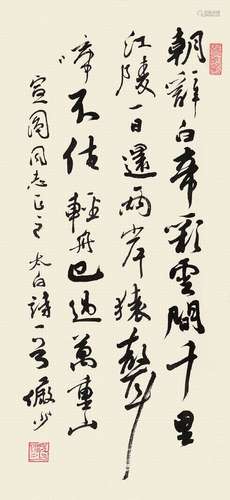 朝辭白帝彩雲間千里
江陵一日還兩岸猿聲
啼不住輕舟已過萬重山
宣閣同志正之 太白詩一首 儼少